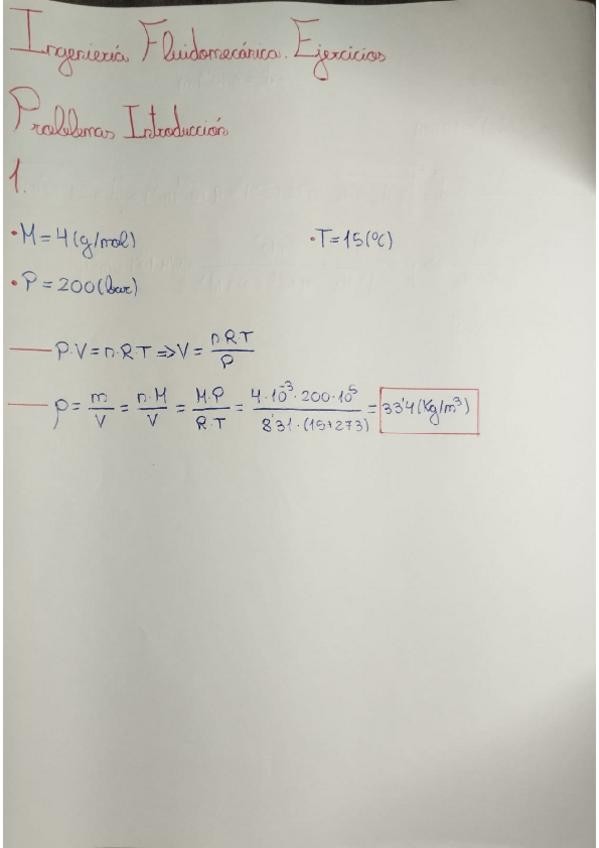 Ingeniería Fluidomecánica. Ejercicios
Problemas Introducción
1.
• M = 4 (g/mol)
• T = 15 (ºC)
• P = 200 (bar)
P·V = n·R·T => V = n·R·T / P
ρ = m/V = n·M/V = M·P/R·T = 4·10^-3·200·10^5 / 8'31·(15+273) = 33'4 (Kg/m³)